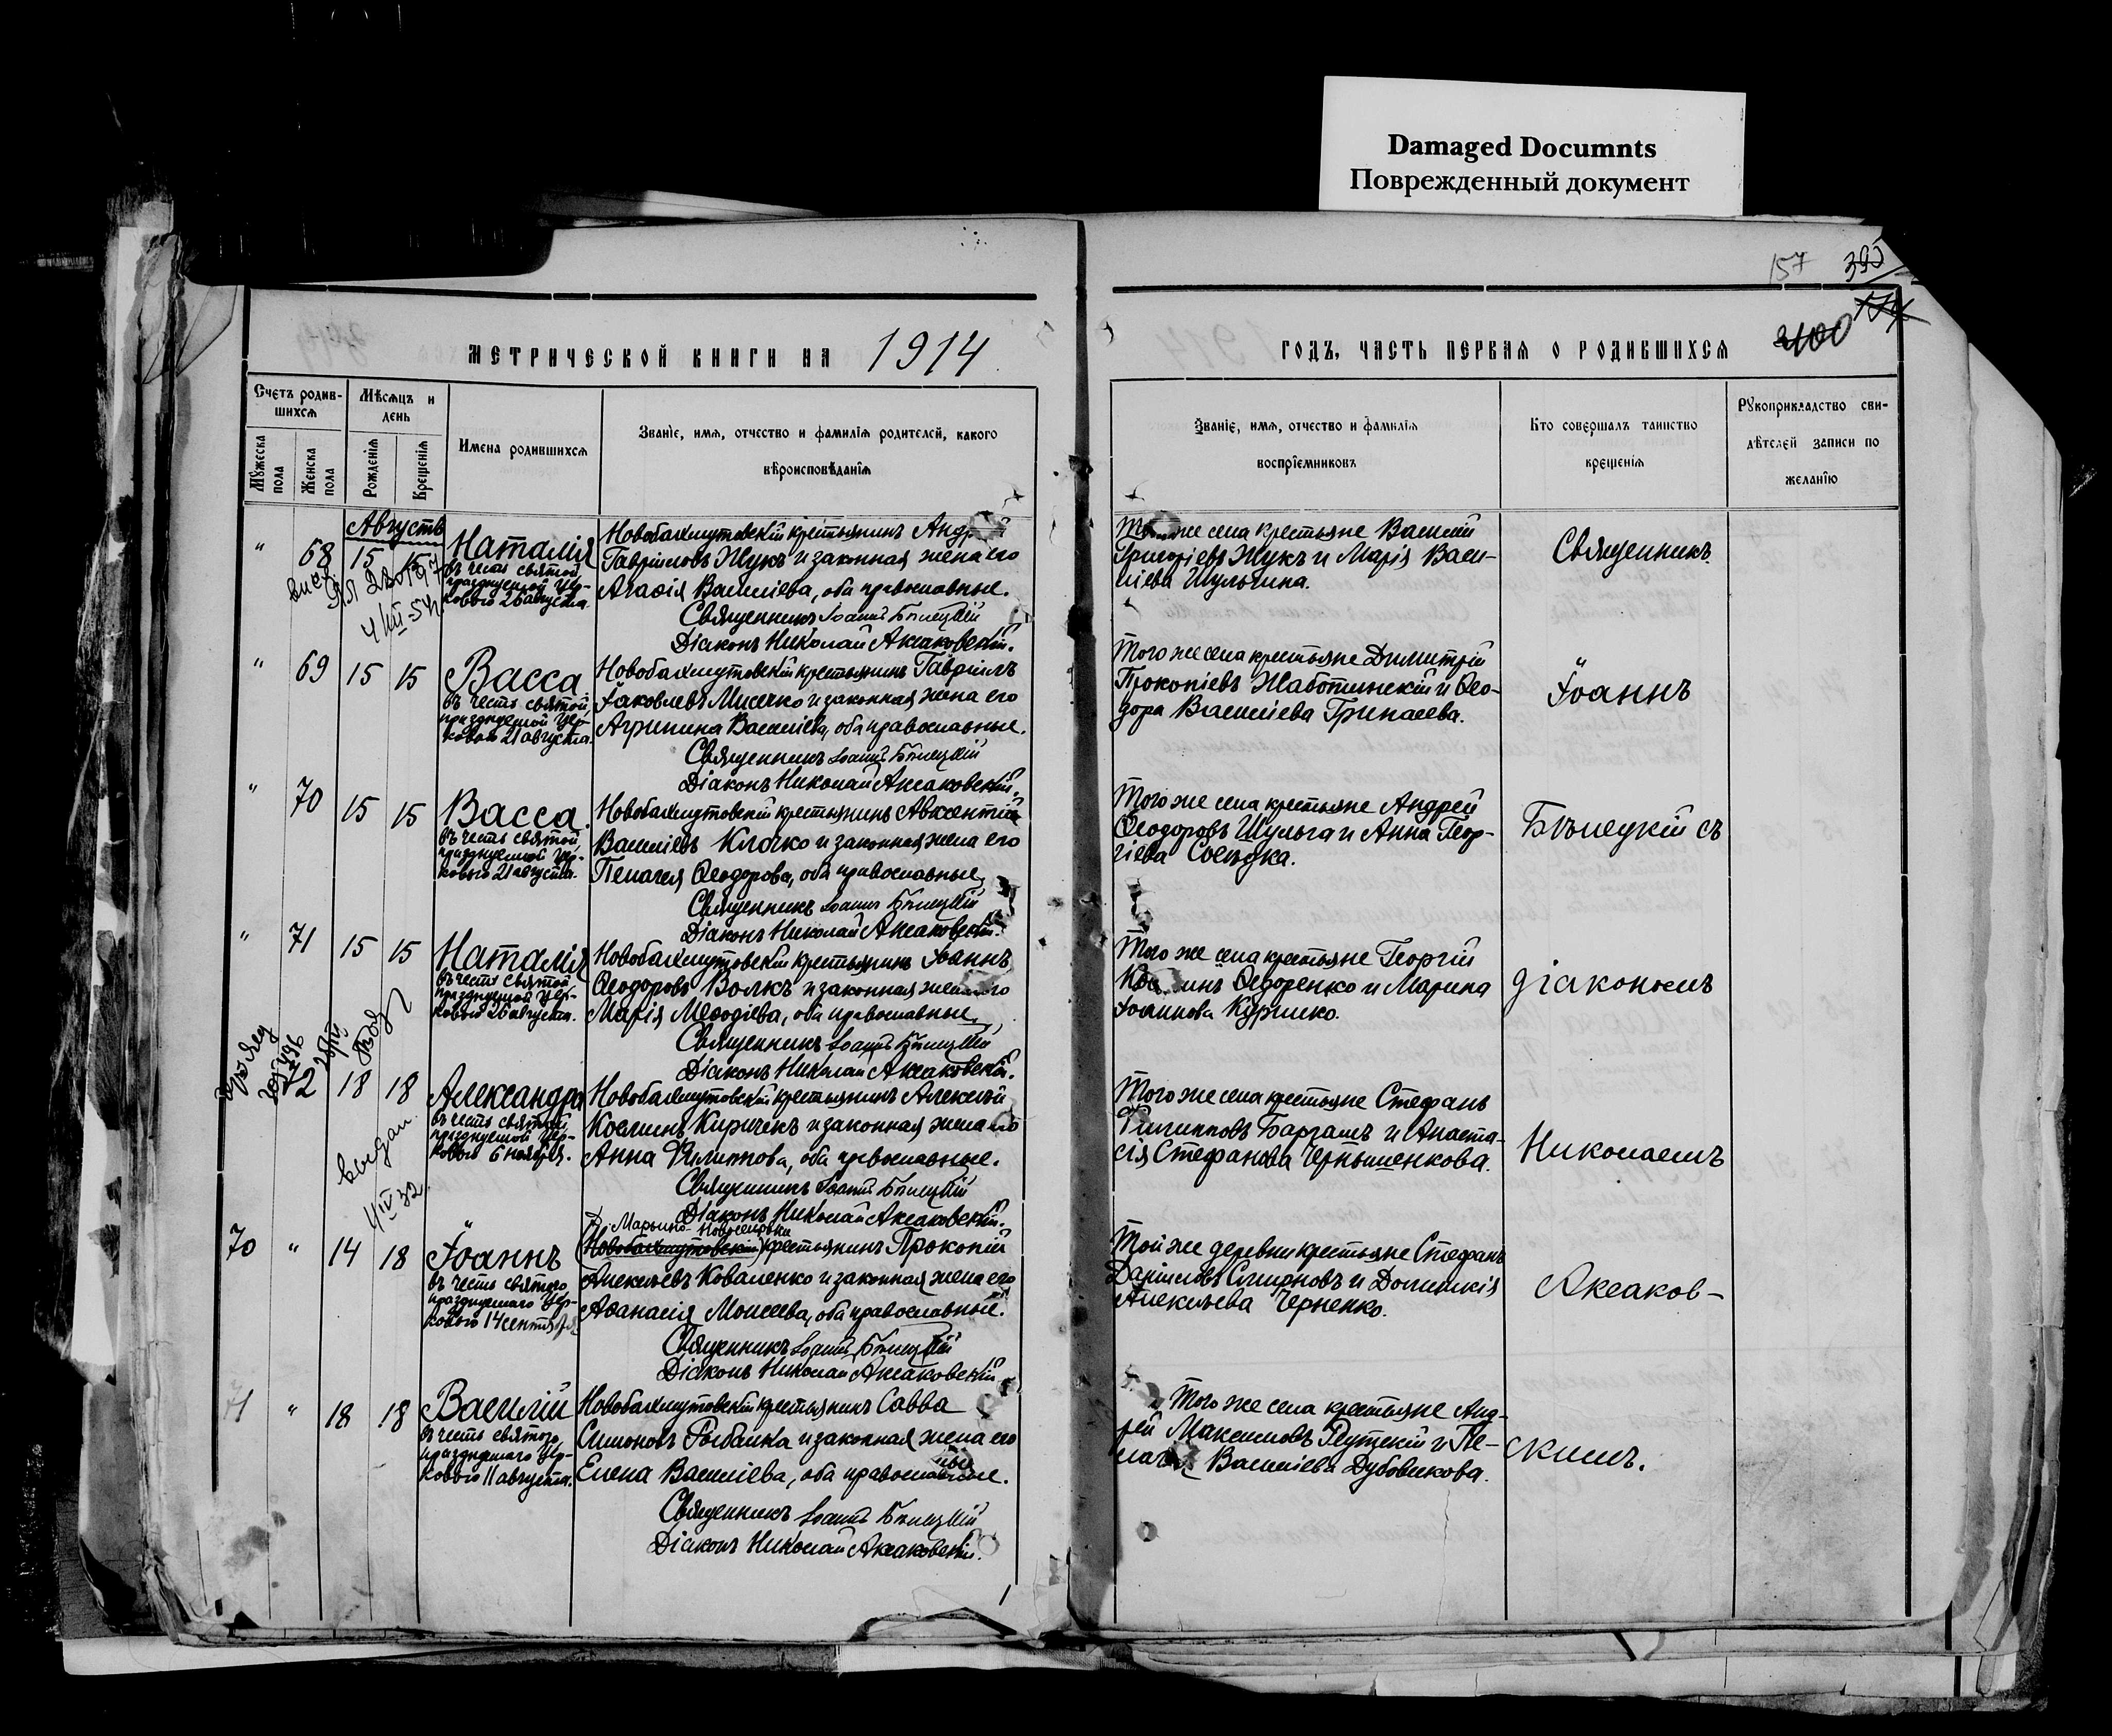 Damaged Documnts
Поврежденный документ
157
395
400
174
МЕТРИЧЕСКОЙ КНИГИ НА 1914
ГОДЪ, ЧАСТЬ ПЕРВАЯ О РОДИВШИХСЯ
Счетъ родив-
шихся
Мѣсяцъ и
день
Мужеска
пола
Женска
пола
Рожденія
Крещенія
Имена родившихся
Званіе, имя, отчество и фамилія родителей, какого
вѣроисповѣданія
Званіе, имя, отчество и фамилія
воспріемниковъ
Кто совершалъ таинство
крещенія
Рукоприкладство сви-
дѣтелей записи по
желанію
Августъ
" 68 15 15
Наталія
въ честь святой,
празднуемой Цер-
ковью 26 августа.
Новобахмутовскій крестьянинъ Андрей
Гавріиловъ Жукъ и законная жена его
Агафія Василіева, оба православные.
Священникъ Іоаннъ Бѣлецкій
Діаконъ Николай Аксаковскій.
Того же села крестьяне Василій
Григоріевъ Жукъ и Марія Васи-
ліева Шульгина.
Священникъ
" 69 15 15
Васса
въ честь святой,
празднуемой Цер-
ковью 21 августа.
Новобахмутовскій крестьянинъ Гавріилъ
Іаковлевъ Мисечко и законная жена его
Агрипина Василіева, оба православные.
Священникъ Іоаннъ Бѣлецкій
Діаконъ Николай Аксаковскій.
Того же села крестьяне Димитрій
Прокопіевъ Жаботинскій и Ѳео-
дора Василіева Гринаева.
Іоаннъ
" 70 15 15
Васса
въ честь святой,
празднуемой Цер-
ковью 21 августа.
Новобахмутовскій крестьянинъ Авксентій
Василіевъ Клочко и законная жена его
Пелагея Ѳеодорова, оба православные.
Священникъ Іоаннъ Бѣлецкій
Діаконъ Николай Аксаковскій.
Того же села крестьяне Андрей
Ѳеодоровъ Шульга и Анна Геор-
гіева
Бѣлецкій съ
" 71 15 15
Наталія
въ честь святой,
празднуемой Цер-
ковью 26 августа.
Новобахмутовскій крестьянинъ Іоаннъ
Ѳеодоровъ Волкъ и законная жена его
Марія Меѳодіева, оба православные.
Священникъ Іоаннъ Бѣлецкій
Діаконъ Николай Аксаковскій.
Того же села крестьяне Георгій
Ѳедоренко и Марина
Іоаннова
діакономъ
72 18 18
Александра
въ честь святой,
празднуемой Цер-
ковью 6 ноября.
Новобахмутовскій крестьянинъ Алексѣй
Косминъ Кириченъ и законная жена его
Анна Филиппова, оба православные.
Священникъ Іоаннъ Бѣлецкій
Діаконъ Николай Аксаковскій.
Того же села крестьяне Стефанъ
Филипповъ Барташъ и Анаста-
сія Стефанова Чернышенкова.
Николаемъ
выдан
4/IV 32
70 " 14 18
Іоаннъ
въ честь святого,
празднуемаго Цер-
ковью 14 сентября
Марьино-
(Новобахмутовскій) крестьянинъ Прокопій
Алексѣевъ Коваленко и законная жена его
Аѳанасія Моисеева, оба православные.
Священникъ Іоаннъ Бѣлецкій
Діаконъ Николай Аксаковскій
Той же деревни крестьяне Стефанъ
Даніиловъ Смирновъ и Домникія
Алексѣева Черненко.
Аксаков-
71 " 18 18
Василій
въ честь святого,
празднуемаго Цер-
ковью 11 августа.
Новобахмутовскій крестьянинъ Савва
Симоновъ Рыбалка и законная жена его
Елена Василіева, оба православные.
Священникъ Іоаннъ Бѣлецкій
Діаконъ Николай Аксаковскій.
Того же села крестьяне Анд-
рей Максимовъ Реутскій и Пе-
лагея Василіева Дубовикова.
скимъ.